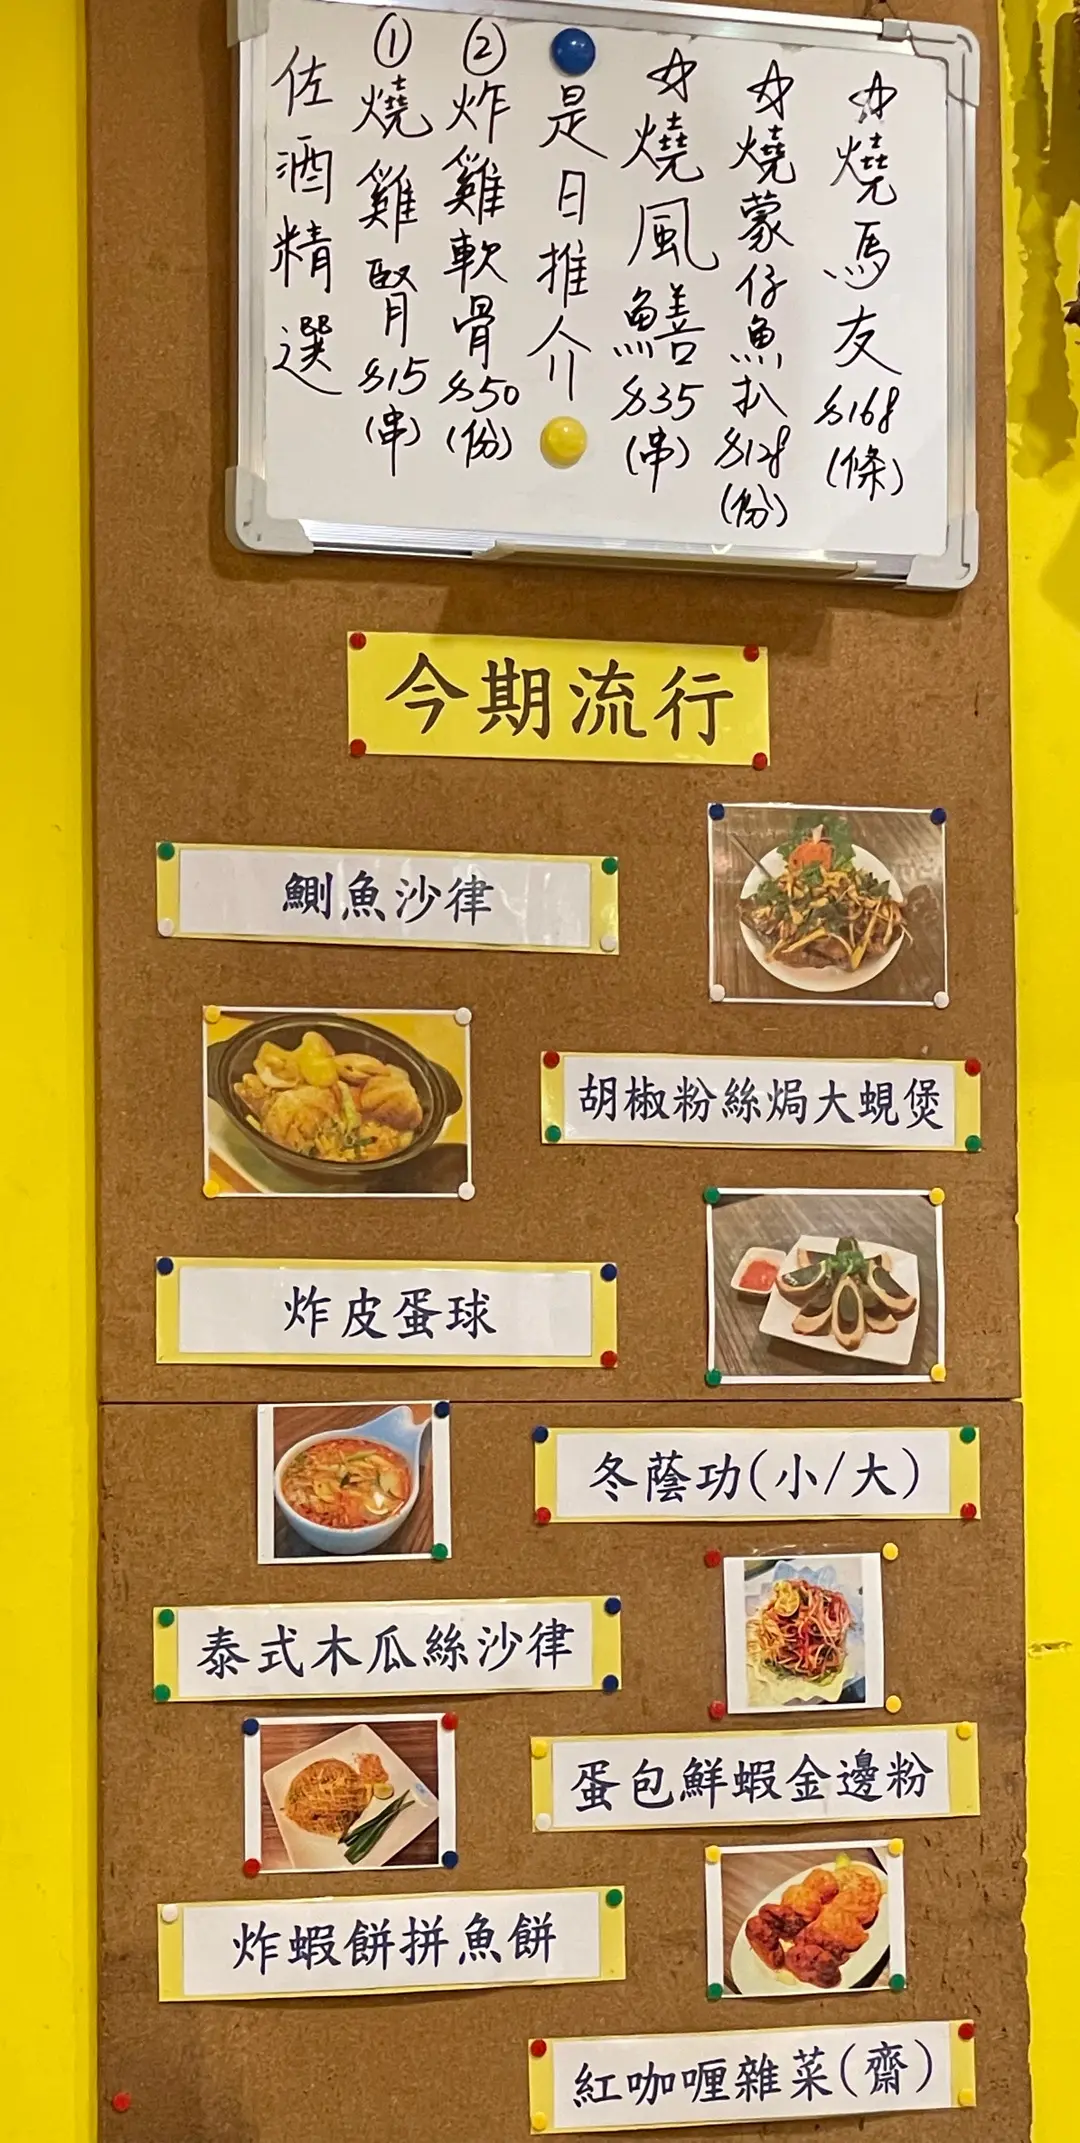 佐酒精選
①燒雞腎$15(串)
②炸雞軟骨$50(份)
是日推介
☆燒風鱔$35(串)
☆燒蒙仔魚扒$128(份)
☆燒馬友$168(條)
今期流行
鰂魚沙律
胡椒粉絲焗大蜆煲
炸皮蛋球
冬蔭功(小/大)
泰式木瓜絲沙律
蛋包鮮蝦金邊粉
炸蝦餅拼魚餅
紅咖喱雜菜(齋)